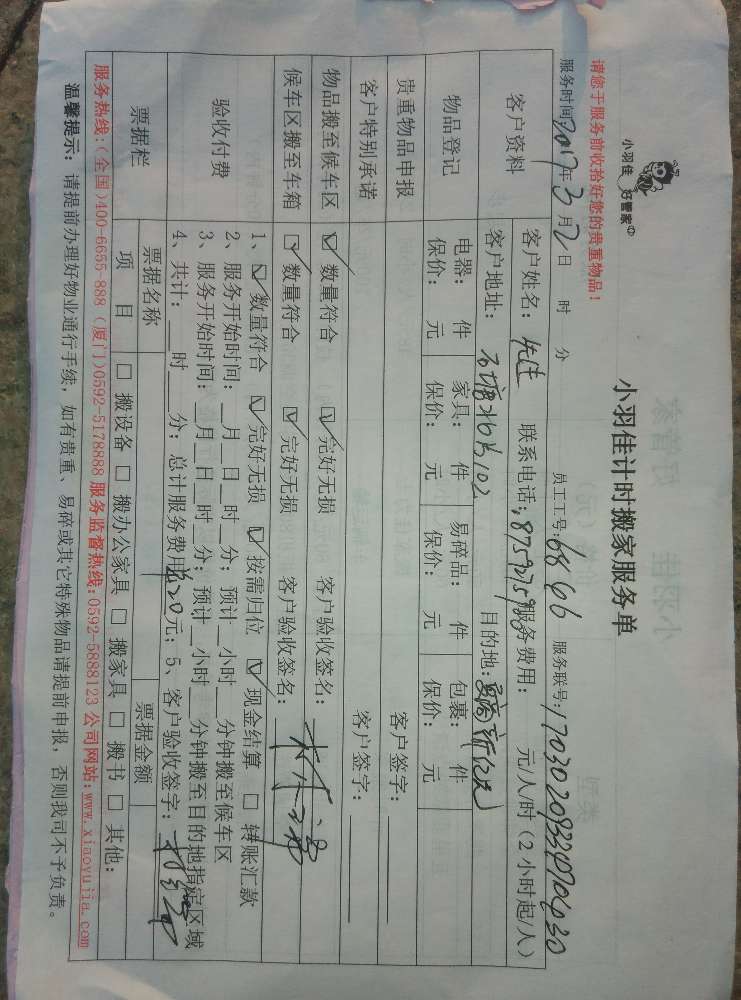 小羽佳 好管家
小羽佳计时搬家服务单
请您于服务前收拾好您的贵重物品！
服务时间：2017年3月2日 时 分 员工工号：6866 服务联号：
客户资料 客户姓名：先生 联系电话： 服务费用： 元/人/时（2小时起/人）
客户地址： 102 目的地：
物品登记 电器： 件 家具： 件 易碎品： 件 包裹： 件
保价： 元 保价： 元 保价： 元 保价： 元
贵重物品申报 客户签字：
客户特别承诺 客户签字：
物品搬至候车区 ☑ 数量符合 ☑ 完好无损 客户验收签名：
候车区搬至车箱 ☑ 数量符合 ☑ 完好无损 客户验收签名：
验收付费 1、☑ 数量符合 ☑ 完好无损 ☑ 按需归位 ☑ 现金结算 □ 转账汇款
2、服务开始时间：__月__日__时__分；预计__小时__分钟搬至候车区
3、服务开始时间：__月__日__时__分；预计__小时__分钟搬至目的地指定区域
4、共计：__时__分；总计服务费用 20元；5、客户验收签字：
票据栏 票据名称 票据金额
项 目 □ 搬设备 □ 搬办公家具 □ 搬家具 □ 搬书 □ 其他：
服务热线：（全国）400-6655-888（厦门）0592-5178888 服务监督热线：0592-5888123 公司网站：www.xiaoyujia.com
温馨提示：请提前办理好物业通行手续，如有贵重、易碎或其它特殊物品请提前申报，否则我司不予负责。